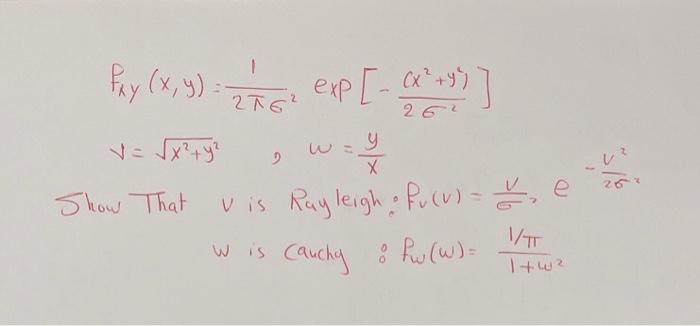 fxy (x,y) = 1/(2πσ²) exp [ - (x²+y²)/(2σ²) ]
v = √(x²+y²) , w = y/x
Show That v is Rayleigh : fv(v) = v/σ² e^(-v²/(2σ²))
w is Cauchy : fw(w) = (1/π)/(1+w²)